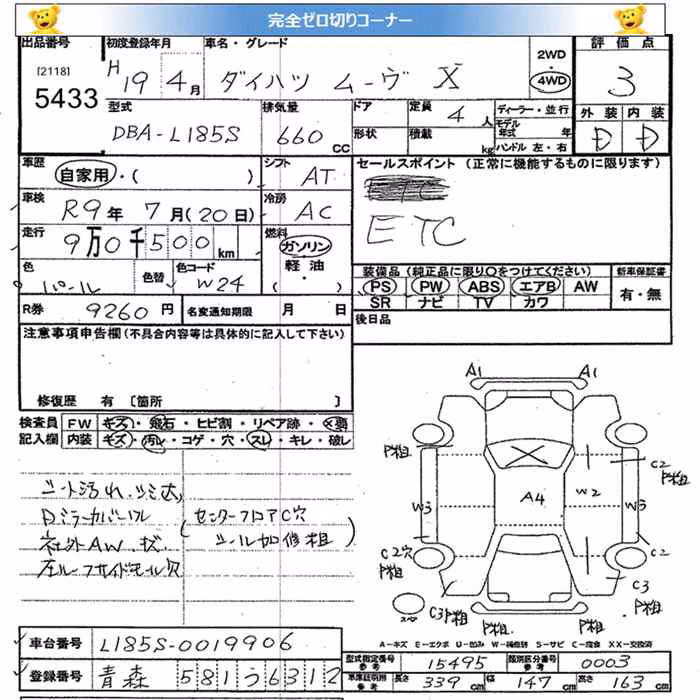 完全ゼロ切りコーナー
出品番号
[2118]
5433
初度登録年月
H19年4月
車名・グレード
ダイハツ ムーヴ X
2WD
4WD
評価点
3
外装 内装
D D
型式
DBA-L185S
排気量
660 CC
ドア
形状
定員 4 人
積載 kg
ディーラー・並行
モデル年式 年
ハンドル 左・右
車歴
自家用・( )
シフト
AT
車検
R9年7月(20日)
冷房
AC
走行
9万0千500km
燃料
ガソリン
軽油・
( )
色
パール
色替
色コード
W24
R券
9260円
名変通知期限 月 日
セールスポイント (正常に機能するものに限ります)
ETC
ETC
装備品(純正品に限り○をつけてください)
PS PW ABS エアB AW
SR ナビ TV カワ
新車保証書
有・無
後日品
注意事項申告欄(不具合内容等は具体的に記入して下さい)
修復歴 有 [箇所 ]
検査員記入欄
FW キズ・飛石・ヒビ割・リペア跡・×要
内装 キズ・汚レ・コゲ・穴・スレ・キレ・破レ
シート汚れ、シミ大
Dミラーカバーハル
社外AW、状
左ルーフサイドモール欠
(センターフロアC穴
シール加修粗)
A1 A1
P粗
C2
P粗
W3
A4
W2
W3
C2穴
P粗
C2
C3P粗
C3
P粗
P粗 P粗
A-キズ E-エクボ U-凹み W-補修跡 S-サビ C-腐食 XX-交換済
車台番号
L185S-0019906
登録番号
青森 581 う 6312
型式指定番号
参考
15495
類別区分番号
参考
0003
車庫証明用
参考
長さ 339cm
幅 147cm
高さ 163cm